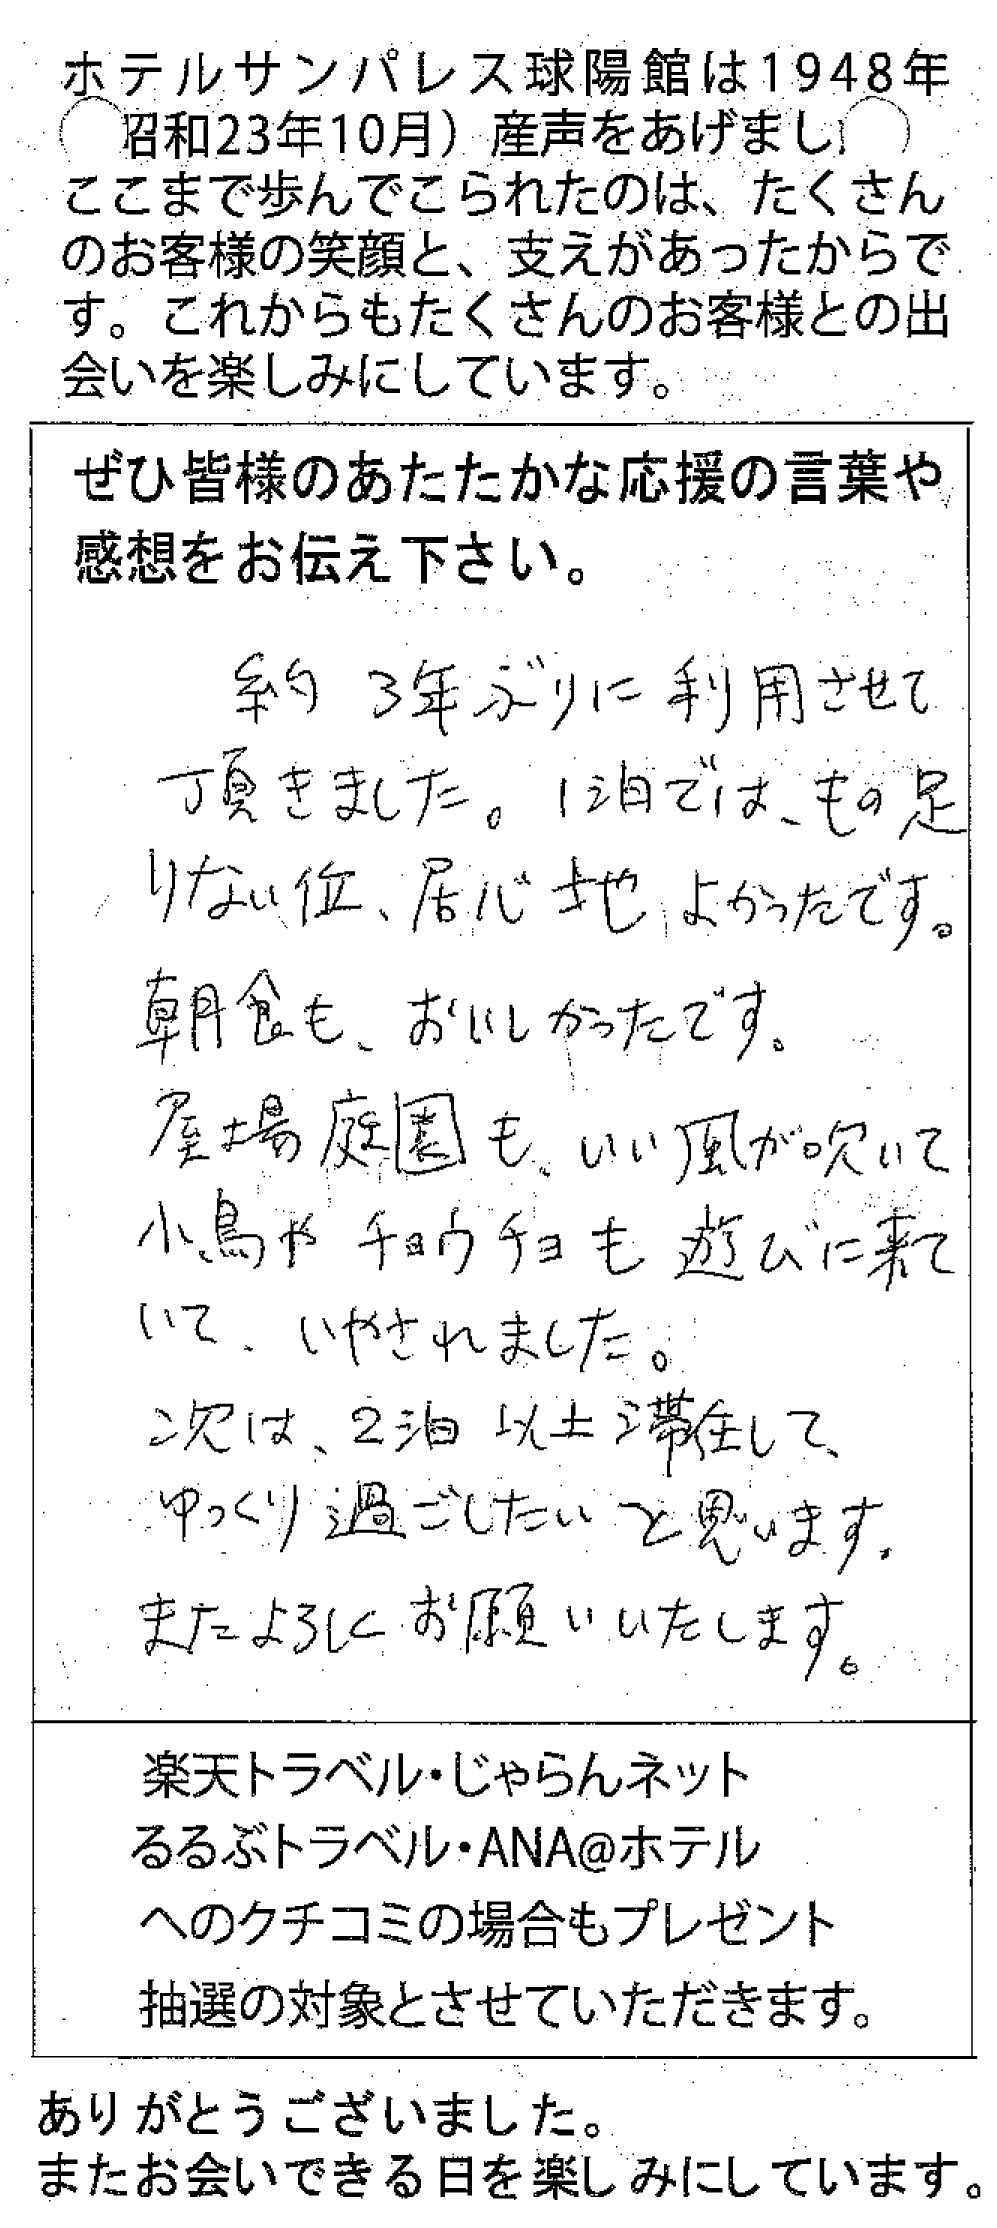 ホテルサンパレス球陽館は1948年
昭和23年10月）産声をあげまし
ここまで歩んでこられたのは、たくさん
のお客様の笑顔と、支えがあったからで
す。これからもたくさんのお客様との出
会いを楽しみにしています。
ぜひ皆様のあたたかな応援の言葉や
感想をお伝え下さい。
約3年ぶりに利用させて
頂きました。1泊では、もの足
りない位、居心地よかったです。
朝食も、おいしかったです。
屋上場庭園も、いい風が吹いて
小鳥やチョウチョも遊びに来て
いて、いやされました。
次は、2泊以上滞在して、
ゆっくり過ごしたいと思います。
またよろしくお願いいたします。
楽天トラベル・じゃらんネット
るるぶトラベル・ANA@ホテル
へのクチコミの場合もプレゼント
抽選の対象とさせていただきます。
ありがとうございました。
またお会いできる日を楽しみにしています。